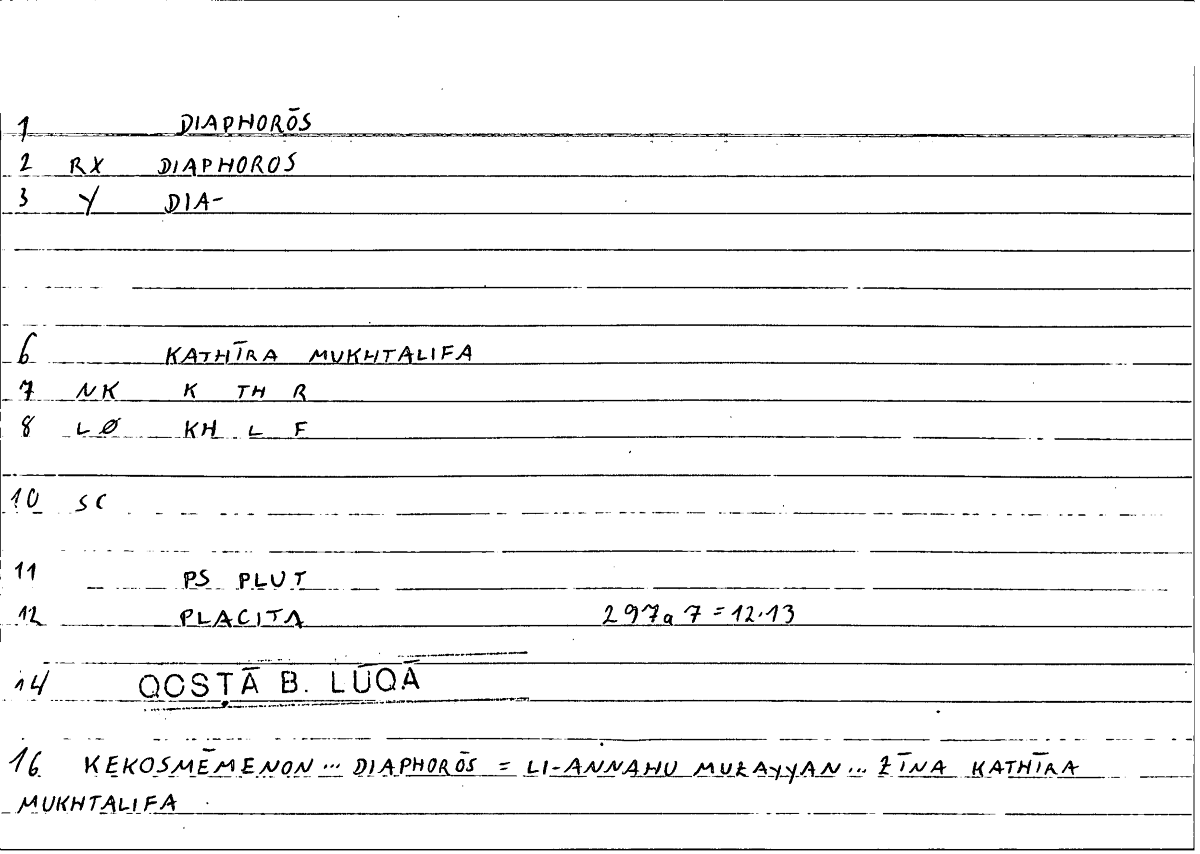 1 DIAPHORŌS
2 RX DIAPHOROS
3 Y DIA-
6 KATHĪRA MUKHTALIFA
7 NK K TH R
8 LØ KH L F
10 SC
11 PS PLUT
12 PLACITA 297a 7 = 12.13
14 QOSṬĀ B. LŪQĀ
16 KEKOSMĒMENON ... DIAPHORŌS = LI-ANNAHU MUŁAYYAN ... ŁĪNA KATHĪRA
MUKHTALIFA